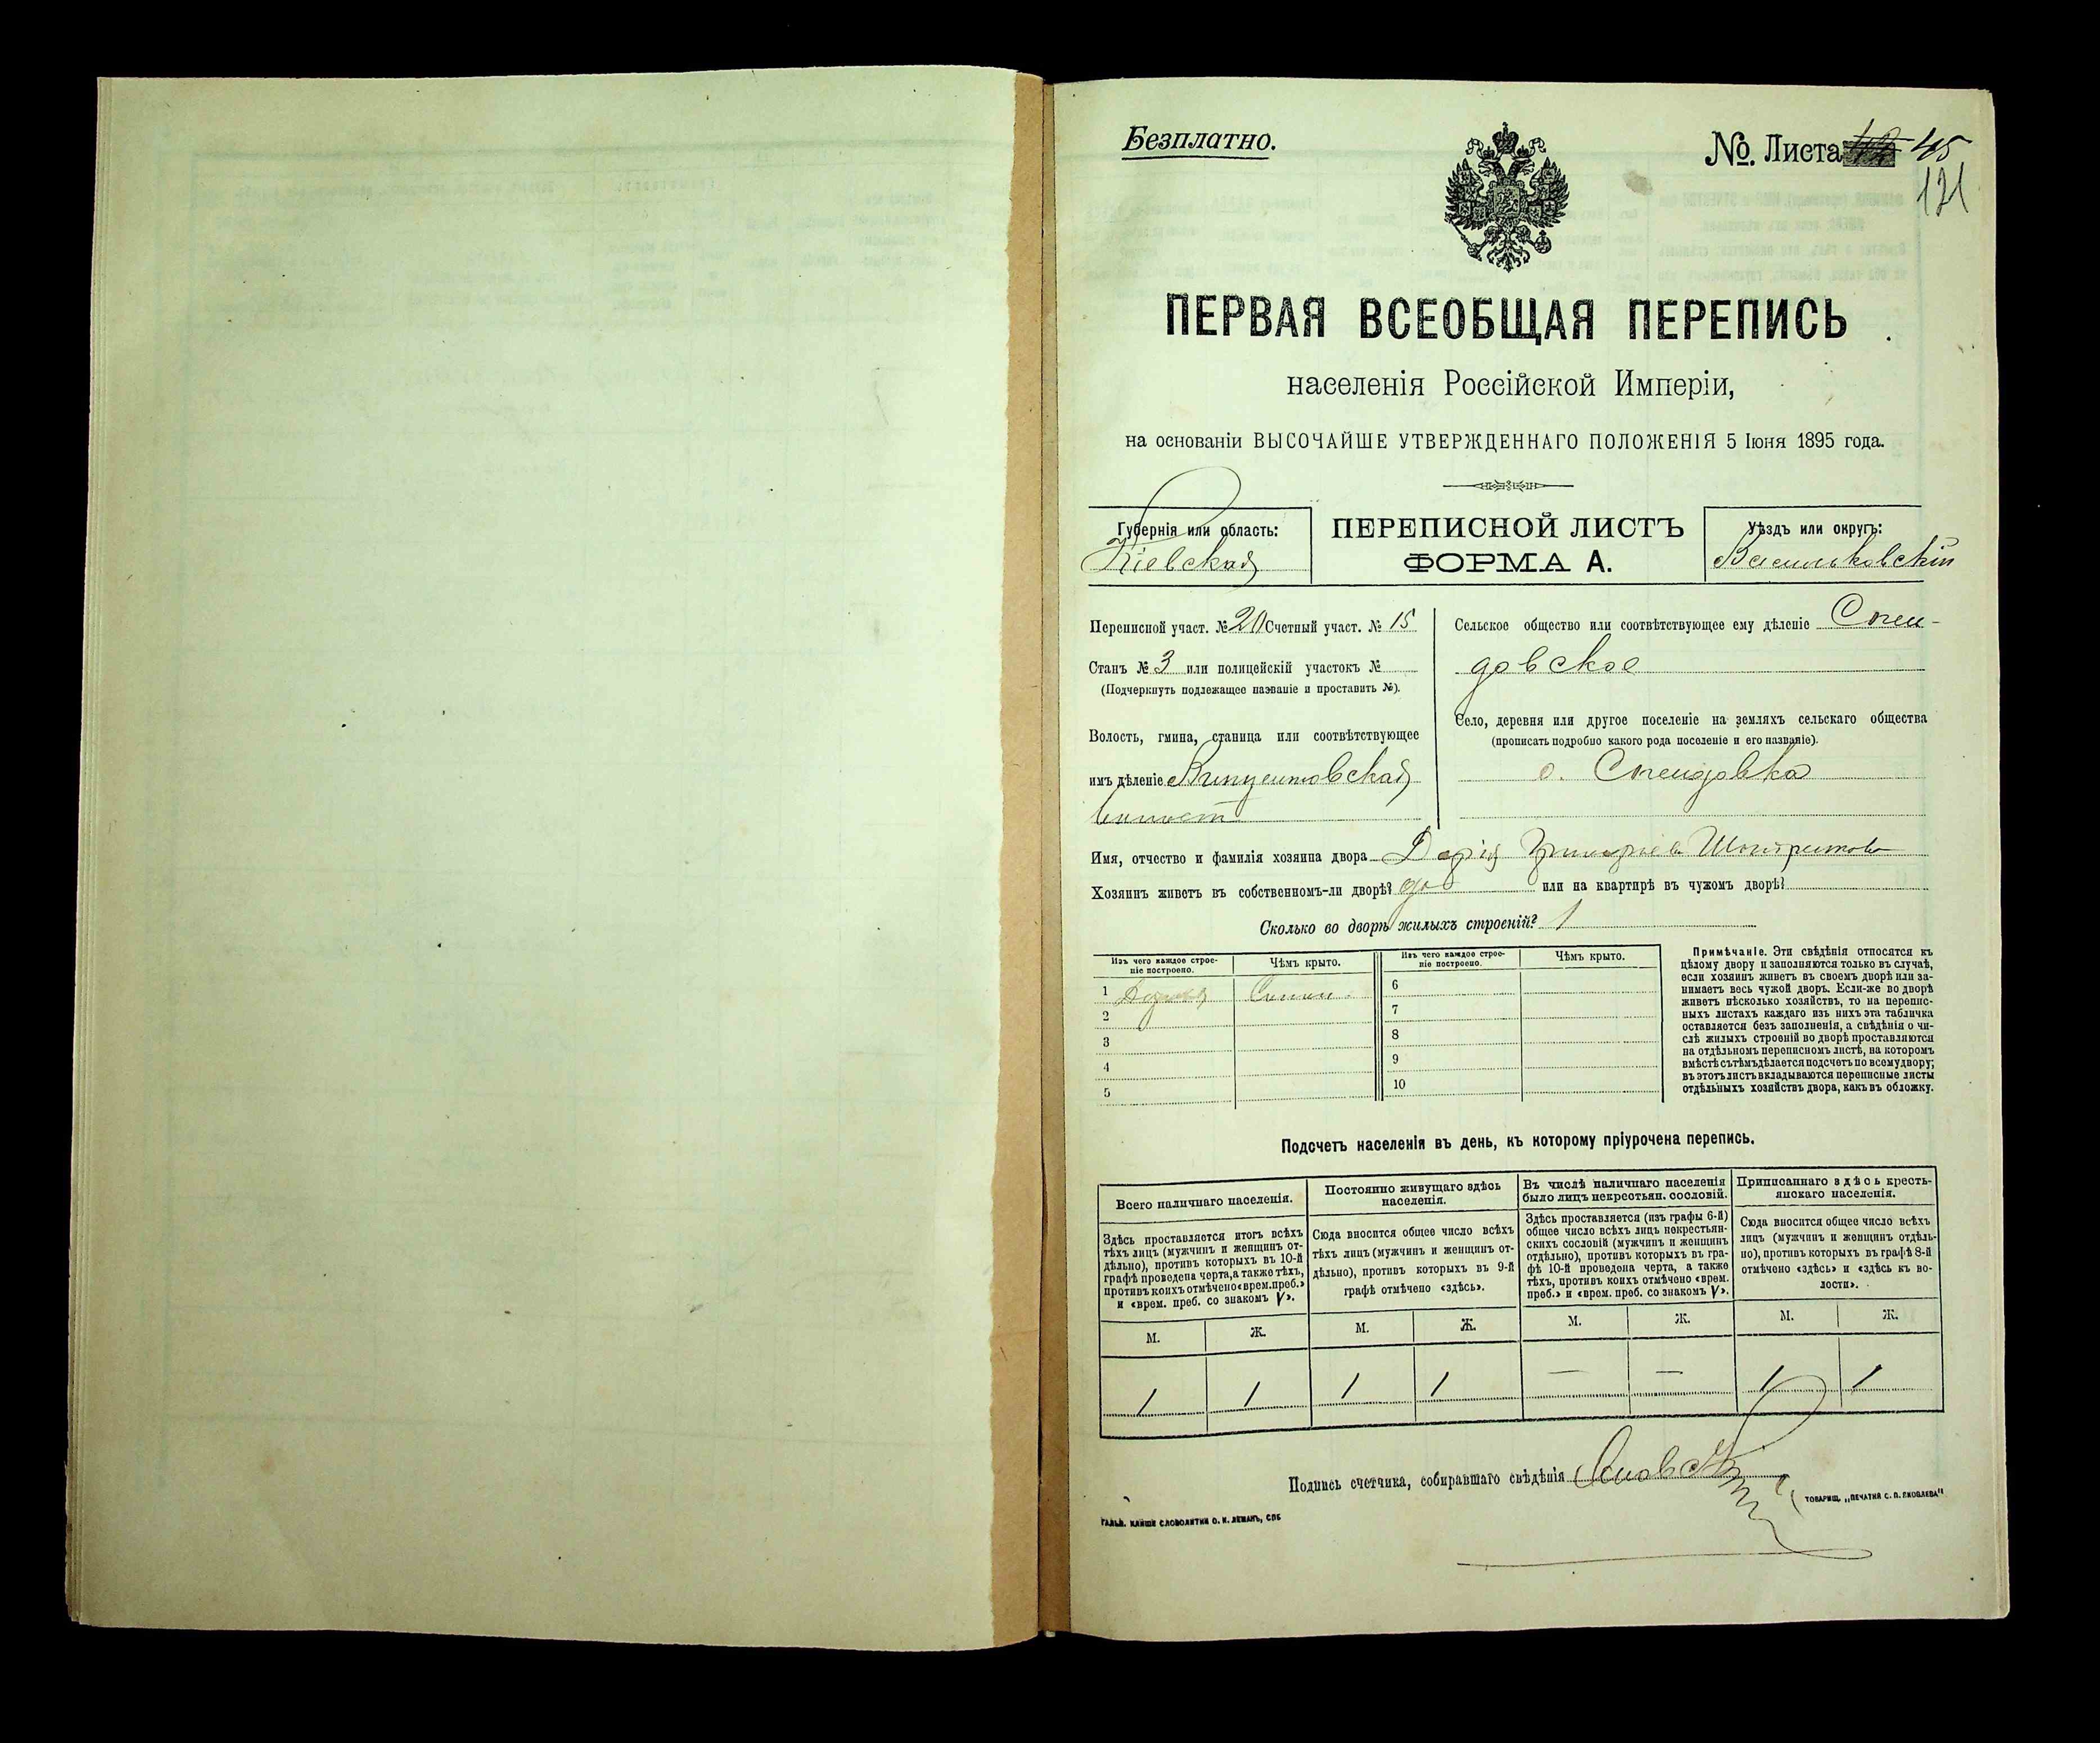 Безплатно.
№. Листа 45
121
ПЕРВАЯ ВСЕОБЩАЯ ПЕРЕПИСЬ
населенія Россійской Имперіи,
на основаніи ВЫСОЧАЙШЕ УТВЕРЖДЕННАГО ПОЛОЖЕНІЯ 5 Іюня 1895 года.
Губернія или область:
Кіевская
ПЕРЕПИСНОЙ ЛИСТЪ
ФОРМА А.
Уѣздъ или округъ:
Васильковскій
Переписной участ. № 20 Счетный участ. № 15
Станъ № 3 или полицейскій участокъ №
(Подчеркнуть подлежащее названіе и проставить №).
Волость, гмина, станица или соотвѣтствующее
имъ дѣленіе
Сельское общество или соотвѣтствующее ему дѣленіе
довское
Село, деревня или другое поселеніе на земляхъ сельскаго общества
(прописать подробно какого рода поселеніе и его названіе).
с.
Имя, отчество и фамилія хозяина двора Дарія
Хозяинъ живетъ въ собственномъ-ли дворѣ? да или на квартирѣ въ чужомъ дворѣ?
Сколько во дворѣ жилыхъ строеній? 1
Изъ чего каждое строе-
ніе построено.
Чѣмъ крыто.
Изъ чего каждое строе-
ніе построено.
Чѣмъ крыто.
1
2
3
4
5
6
7
8
9
10
Примѣчаніе. Эти свѣдѣнія относятся къ
цѣлому двору и заполняются только въ случаѣ,
если хозяинъ живетъ въ своемъ дворѣ или за-
нимаетъ весь чужой дворъ. Если-же во дворѣ
живетъ нѣсколько хозяйствъ, то на перепис-
ныхъ листахъ каждаго изъ нихъ эта табличка
оставляется безъ заполненія, а свѣдѣнія о чи-
слѣ жилыхъ строеній во дворѣ проставляются
на отдѣльномъ переписномъ листѣ, на которомъ
вмѣстѣ съ тѣмъ дѣлается подсчетъ по всему двору;
въ этотъ листъ вкладываются переписные листы
отдѣльныхъ хозяйствъ двора, какъ въ обложку.
Подсчетъ населенія въ день, къ которому пріурочена перепись.
Всего наличнаго населенія.
Здѣсь проставляется итогъ всѣхъ
тѣхъ лицъ (мужчинъ и женщинъ от-
дѣльно), противъ которыхъ въ 10-й
графѣ проведена черта, а также тѣхъ,
противъ коихъ отмѣчено «врем. преб.»
и «врем. преб. со знакомъ V».
М. Ж.
1 1
Постоянно живущаго здѣсь
населенія.
Сюда вносится общее число всѣхъ
тѣхъ лицъ (мужчинъ и женщинъ от-
дѣльно), противъ которыхъ въ 9-й
графѣ отмѣчено «здѣсь».
М. Ж.
1 1
Въ числѣ наличнаго населенія
было лицъ некрестьян. сословій.
Здѣсь проставляется (изъ графы 6-й)
общее число всѣхъ лицъ некрестьян-
скихъ сословій (мужчинъ и женщинъ
отдѣльно), противъ которыхъ въ гра-
фѣ 10-й проведена черта, а также
тѣхъ, противъ коихъ отмѣчено «врем.
преб.» и «врем. преб. со знакомъ V».
М. Ж.
— —
Приписаннаго здѣсь кресть-
янскаго населенія.
Сюда вносится общее число всѣхъ
лицъ (мужчинъ и женщинъ отдѣль-
но), противъ которыхъ въ графѣ 8-й
отмѣчено «здѣсь» и «здѣсь къ во-
лости».
М. Ж.
1 1
Подпись счетчика, собиравшаго свѣдѣнія
ТОВАРИЩ. „ПЕЧАТНЯ С. П. ЯКОВЛЕВА“
СЛОВОЛИТНИ О. И. ЛЕМАНЪ, СПБ